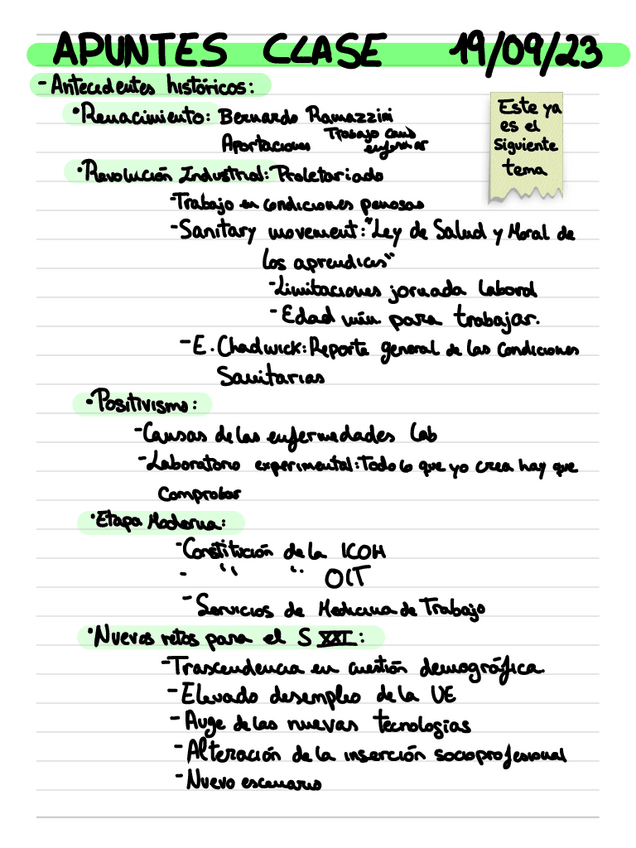 APUNTES CLASE 19/09/23
- Antecedentes históricos:
Este ya
es el
siguiente
tema
• Renacimiento: Bernardo Ramazzini
Aportaciones Trabajo como
enfermar
• Revolución Industrial: Proletariado
- Trabajo en condiciones penosas
- Sanitary movement: "Ley de Salud y Moral de
los aprendices"
- Limitaciones jornada laboral
- Edad mín para trabajar.
- E. Chadwick: Reporte general de las condiciones
Sanitarias
• Positivismo:
- Causas de las enfermedades lab
- Laboratorio experimental: Todo lo que yo crea hay que
comprobar
• Etapa Moderna:
- Constitución de la ICOH
- " " OIT
- Servicios de Medicina de Trabajo
• Nuevos retos para el S XXI:
- Trascendencia en cuestión demográfica
- Elevado desempleo de la UE
- Auge de las nuevas tecnologías
- Alteración de la inserción socioprofesional
- Nuevo escenario